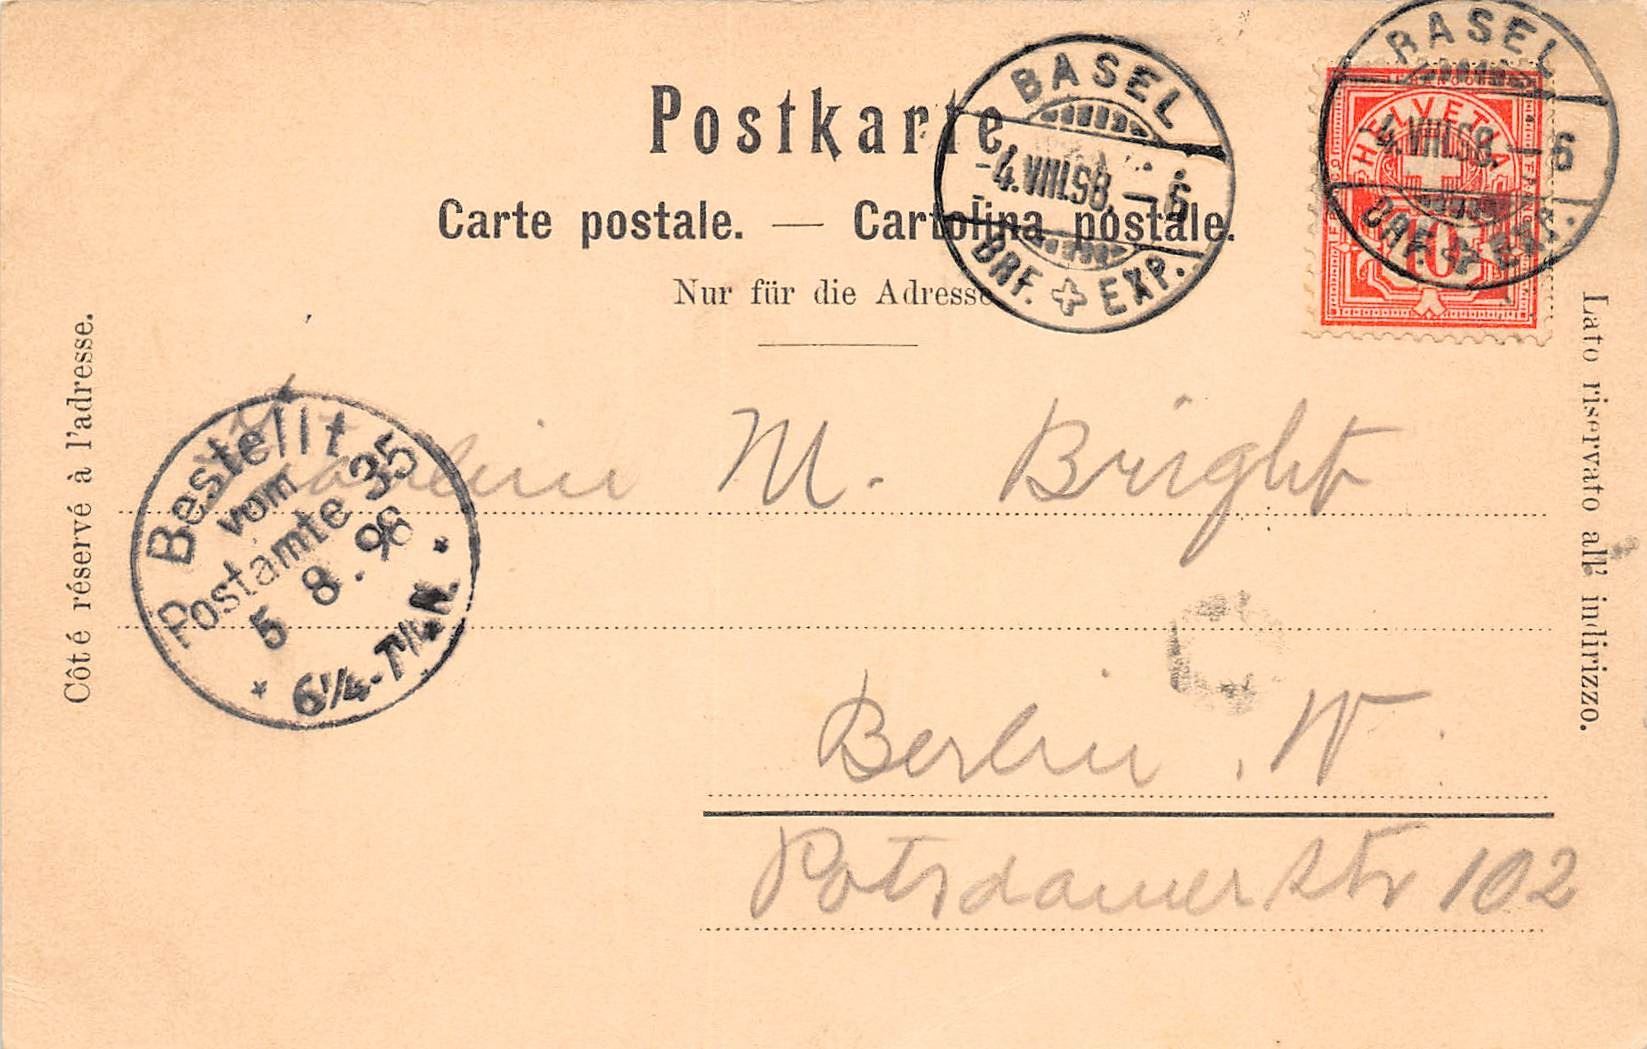 Postkarte.
Carte postale. — Cartolina postale.
Nur für die Adresse
BASEL
-4.VIII.98.—6
BRF. EXP.
BASEL
4.VIII.98.—6
BRF. EXP.
HELVETIA
FRANCO
10
Côté réservé à l'adresse.
Lato riservato all' indirizzo.
Bestellt
vom
Postamte 35
5 8. 98
6¼-7¼N.
Fräulein M. Bright
Berlin. W.
Potsdamerstr 102